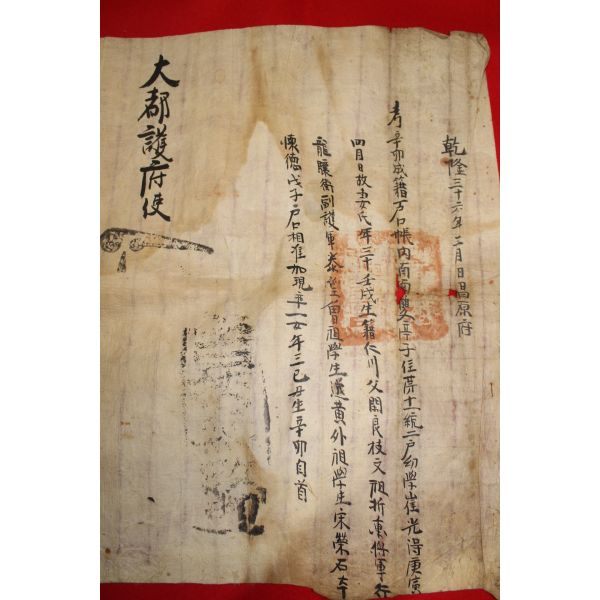 乾隆三十六年二月日昌原府
考辛卯成籍戶口帳內南面雙亭子住第十一統二戶幼學崔光得庚寅
四月日故妻氏年三十壬戌生籍仁川父閑良枝文祖折衝將軍行
龍驤衛副護軍泰 曾祖學生還黃外祖學生宋榮石本
懷德戊子戶口相准加現率一女年三己丑生辛卯自首
大都護府使